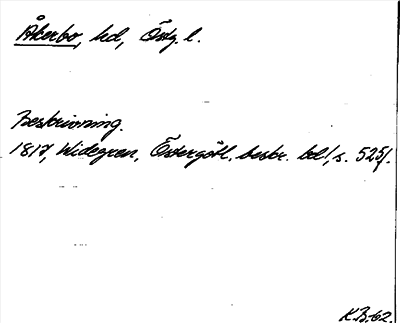 Åkerbo, hd, Östg. l.
Beskrivning.
1817, Widegren, Östergötl. beskr. bd 1, s. 525f.
K.B.-62.